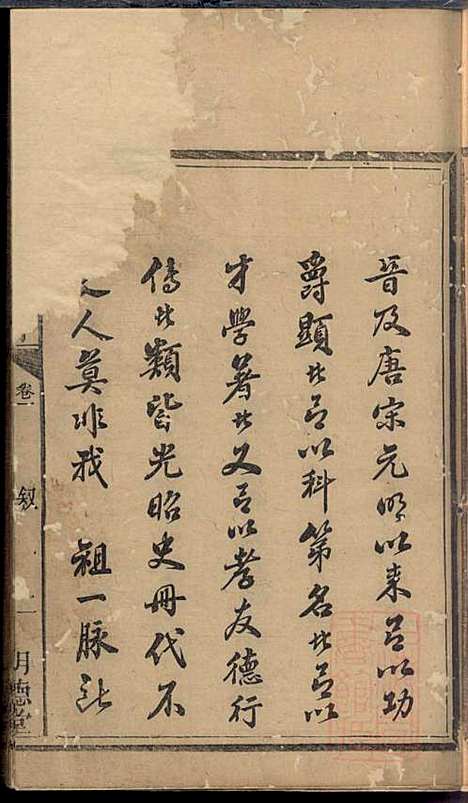 晉及唐宋元明以來有以功
爵顯者有以科第名者有以
才學著者又有以孝友德行
傳者類皆光昭史冊代不
乏人莫非我 祖一脉
卷一 叙 一 明德堂